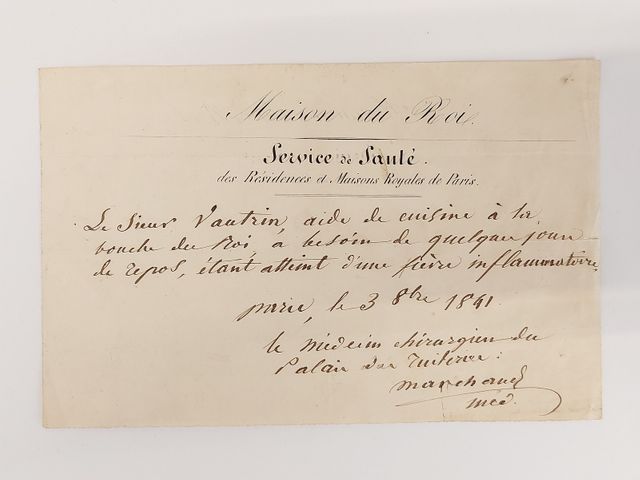 Maison du Roi.
Service de Santé.
des Résidences et Maisons Royales de Paris.
Le Sieur Vautrin, aide de cuisine à la
bouche du Roi, à besoin de quelque jour
de repos, étant atteint d'une fièvre inflammatoire,
paris, le 3 8bre 1841.
le médecin chirurgien du
Palais des Tuileries.
marchand
méd.